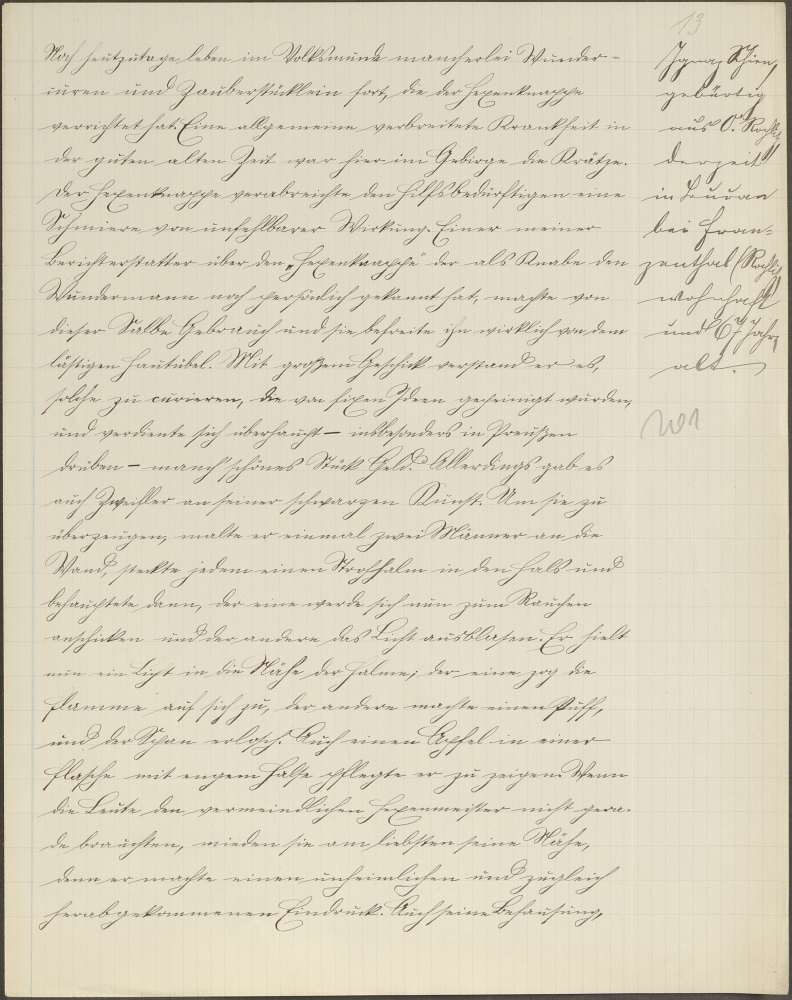 13
Noch heutzutage leben im Volksmunde mancherlei Wunder-
kuren und Zauberstücklein fort, die der Hexenknappe
verrichtet hat. Eine allgemeine verbreitete Krankheit in
der guten alten Zeit war hier im Gebirge die Krätze.
Der Hexenknappe verabreichte den Hilfsbedürftigen eine
Schmiere von unfehlbarer Wirkung. Einer meiner
Berichterstatter über den „Hexenknappe" der als Knabe den
Wundermann noch persönlich gekannt hat, machte von
dieser Salbe Gebrauch und sie befreite ihn wirklich von dem
lästigen Hautübel. Mit großem Geschick verstand er es,
solche zu curieren, die von fixen Ideen gepeinigt wurden,
und verdiente sich überhaupt – insbesonders in Preußen
drüben – manch' schönes Stück Geld. Allerdings gab es
auch Zweifler an seiner schwarzen Kunst. Um sie zu
überzeugen, malte er einmal zwei Männer an die
Wand, steckte jedem einen Strohhalm in den Hals und
behauptete dann, der eine werde sich nun zum Rauchen
anschicken und der andere das Licht ausblasen. Er hielt
nun ein Licht in die Nähe der Halme; der eine zog die
Flamme auf sich zu, der andere machte einen Puff,
und der Span erlosch. Auch einen Apfel in einer
Flasche mit engem Halse pflegte er zu zeigen. Wenn
die Leute den vermeindlichen Hexenmeister nicht gera-
de brauchten, mieden sie am liebsten seine Nähe,
denn er machte einen unheimlichen und zugleich
herabgekommenen Eindruck. Auch seine Behausung,
Ignaz
gebürtig
aus O.
derzeit
in
bei Fran-
zenthal
wohnhaft
und 67 Jahre
alt.